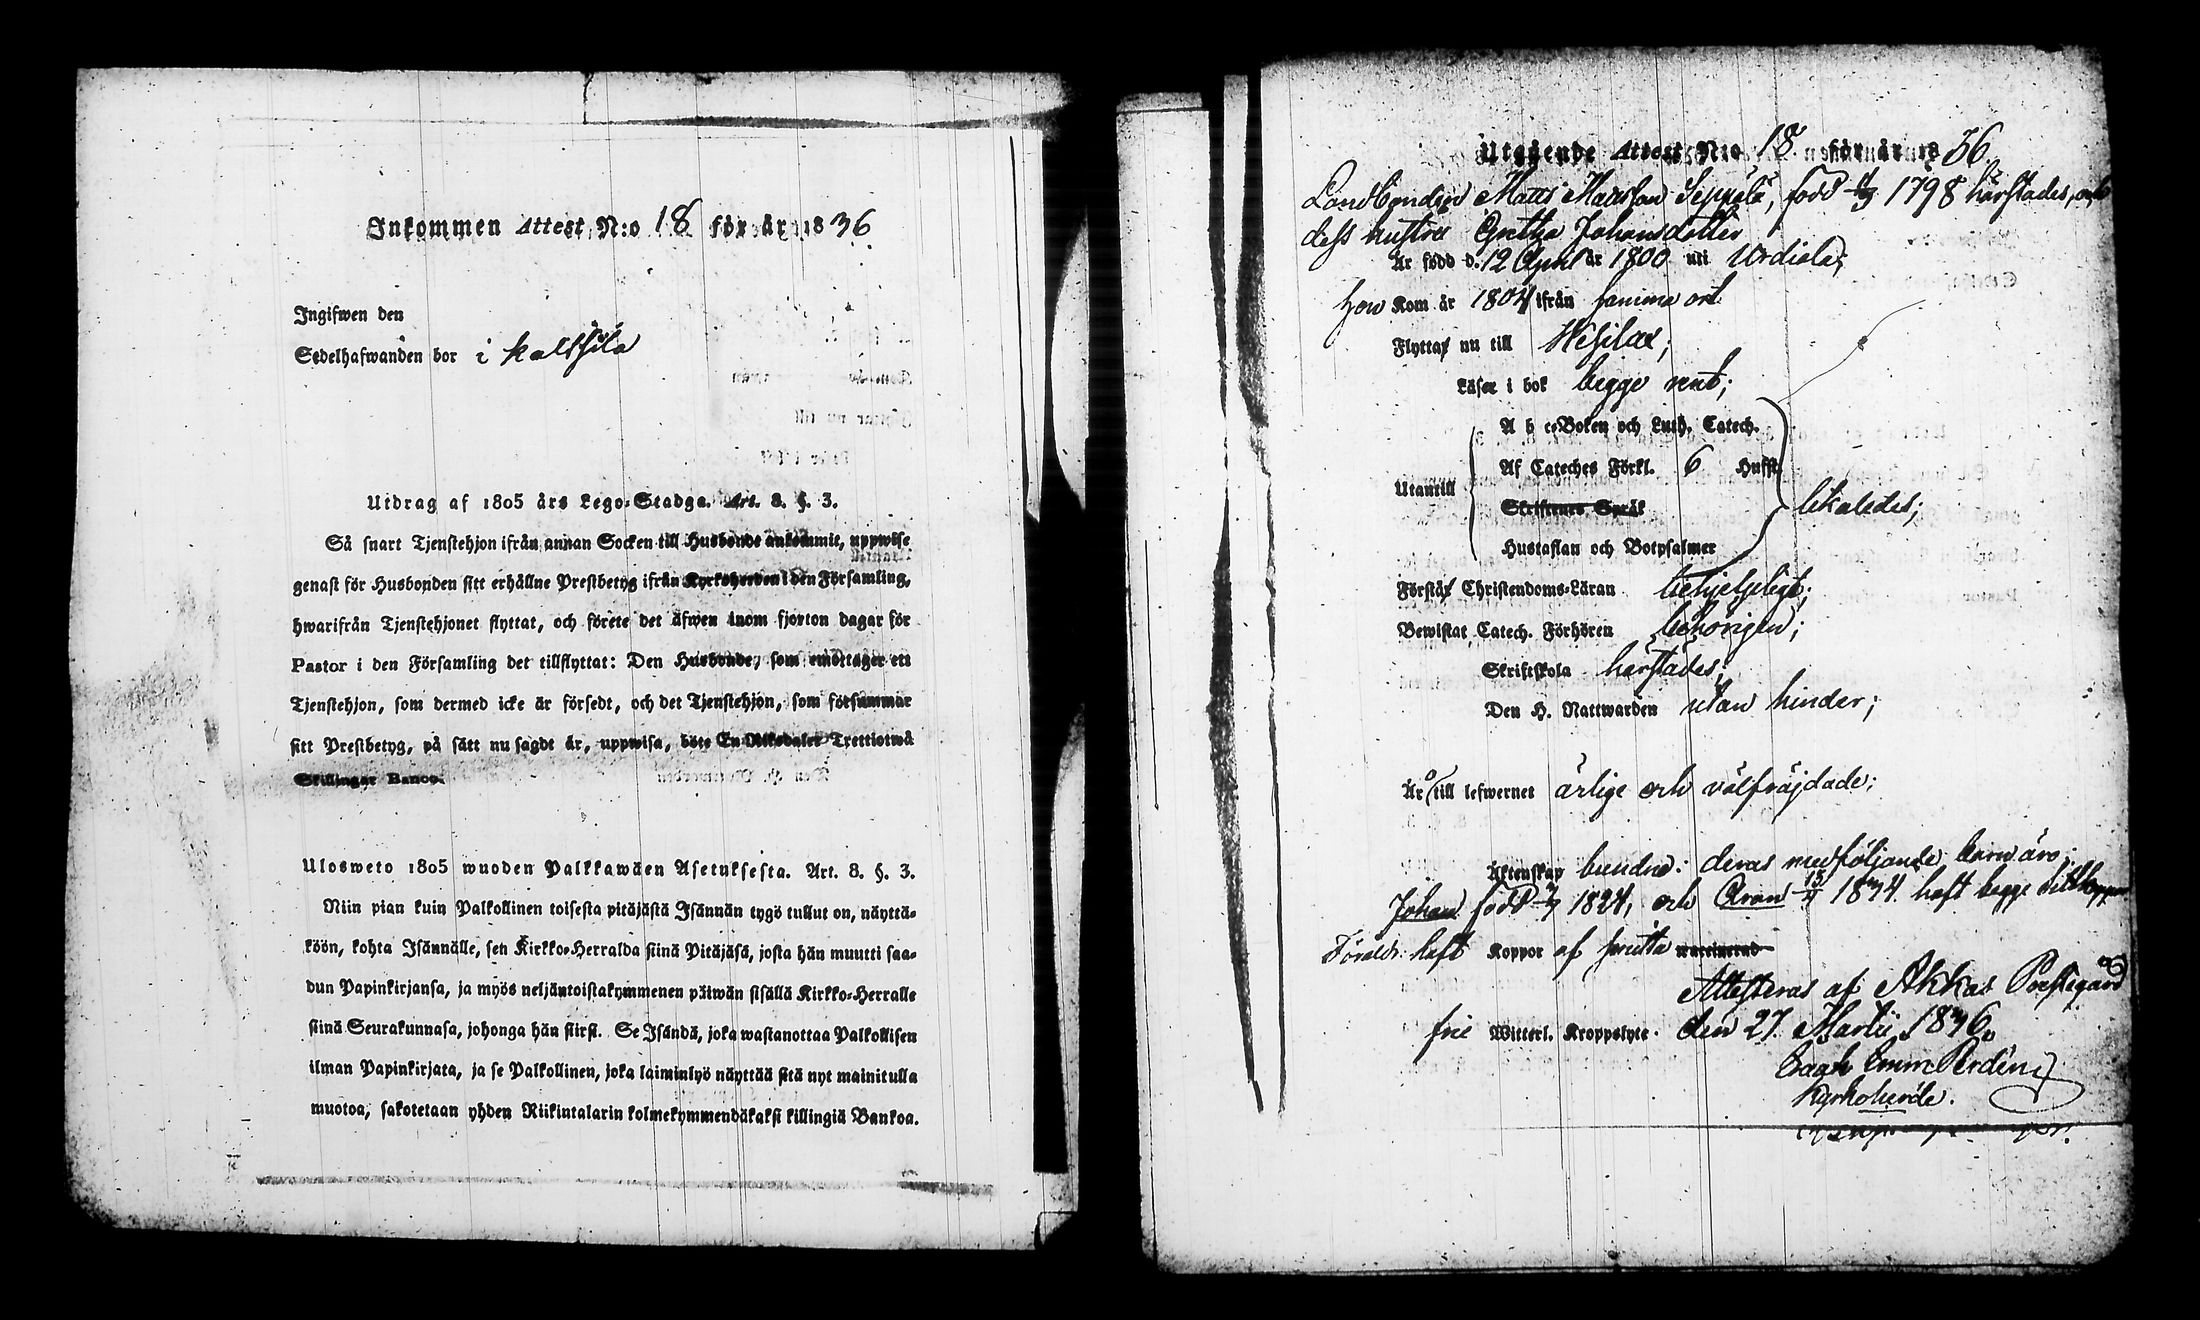 Inkommen Attest N:o 18 för år 1836
Ingifwen den
Sedelhafwanden bor i Kalssila
Utdrag af 1805 års Lego-Stadga. Art. 8. §. 3.
Så snart Tjenstehjon ifrån annan Socken till Husbonde ankommit, uppwise
genast för Husbonden sitt erhållne Prestbetyg ifrån Kyrkoherden i den Församling,
hwarifrån Tjenstehjonet flyttat, och förete det äfwen inom fjorton dagar för
Pastor i den Församling det tillflyttat: Den Husbonde, som emottager ett
Tjenstehjon, som dermed icke är försedt, och det Tjenstehjon, som försummar
sitt Prestbetyg, på sätt nu sagdt är, uppwisa, böte En Riksdaler Trettiotwå
Skillingar Banco.
Ulosweto 1805 wuoden Palkkawäen Asetuksesta. Art. 8. §. 3.
Niin pian kuin Palkollinen toisesta pitäjästä Isännän tygö tullut on, näyttä-
köön, kohta Isännälle, sen Kirkko-Herralda siinä Pitäjäsä, josta hän muutti saa-
dun Papinkirjansa, ja myös neljäntoistakymmenen päiwän sisällä Kirkko-Herralle
siinä Seurakunnasa, johonga hän siirsi. Se Isändä, joka wastanottaa Palkollisen
ilman Papinkirjata, ja se Palkollinen, joka laiminlyö näyttää sitä nyt mainitulla
muotoa, sakotetaan yhden Riikintalarin kolmekymmendäkaksi killingiä Bankoa.
Utgående Attest N:o 18 för år 1836
Landbonden Matts Mattsson Seppälä, född 1798 härstädes, och
dess hustru Gretha Johansdotter
Är född d. 12 April år 1800 uti Urdiala;
hon Kom år 1804 ifrån samma ort
Flytta nu till Wesilax;
Läser i bok begge rent;
A b c-Boken och Luth. Catech.
Af Cateches Förkl. 6 Hufst.
Utantill
Skriftenes Språk
likaledes;
Hustaflan och Botpsalmer
Förstå Christendoms-Läran behjelpligt;
Bewistat Catech. Förhören behörigen;
Skriftskola härstädes;
Den H. Nattwarden utan hinder;
Är till lefwernet ärlige och välfräjdade;
Äktenskap bundne: deras medföljande barn äro:
Johan född 1824, och Aron 15/4 1834. haft begge
Föräldr: haft Koppor af smitta vaccinerad
Attesteras af Akkas Prestegård
frie Witterl. Kroppslyte. den 27. Martii 1836.
Kyrkoherde.